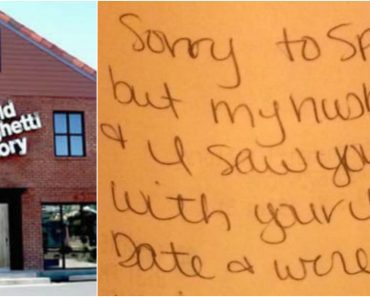 ld
hetti
ory
Sorry to Sp
but my hus
& I saw you
with your
Date & were